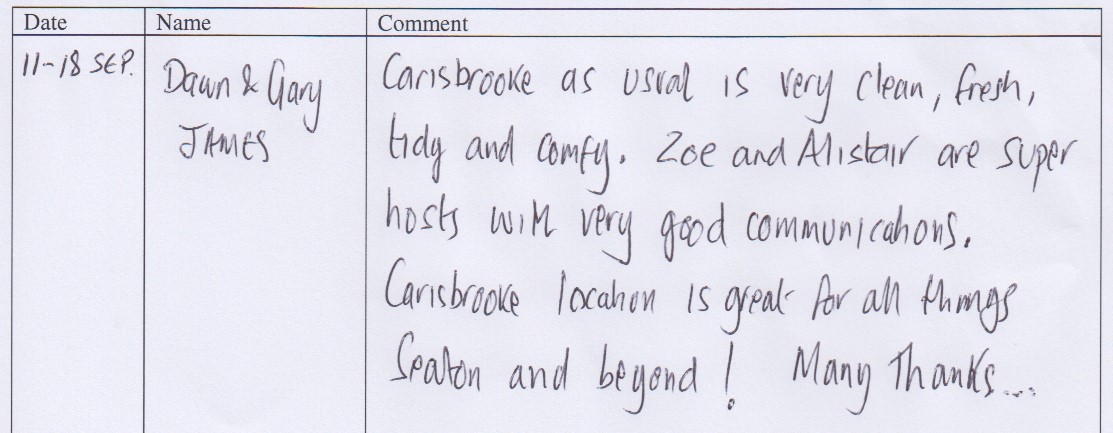 Date Name Comment
11-18 SEP. Dawn & Gary Carisbrooke as usual is very clean, fresh,
JAMES tidy and comfy. Zoe and Alistair are super
hosts with very good communications.
Carisbrooke location is great for all things
Seaton and beyond! Many Thanks...